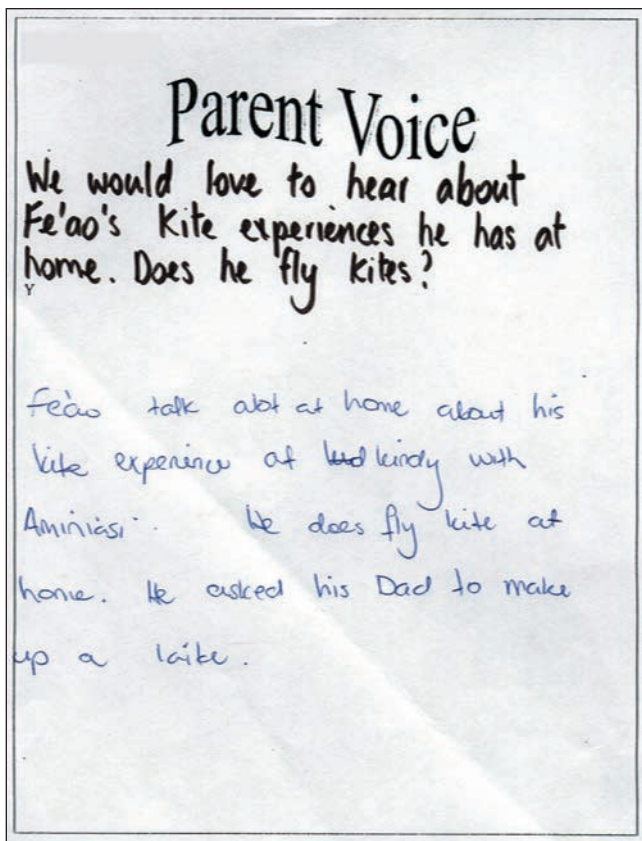 Parent Voice
We would love to hear about
Fe'ao's kite experiences he has at
home. Does he fly kites?
Y
Fe'ao talk alot at home about his
kite experince at kindy with
Aminiasi. He does fly kite at
home. He asked his Dad to make
up a kite.